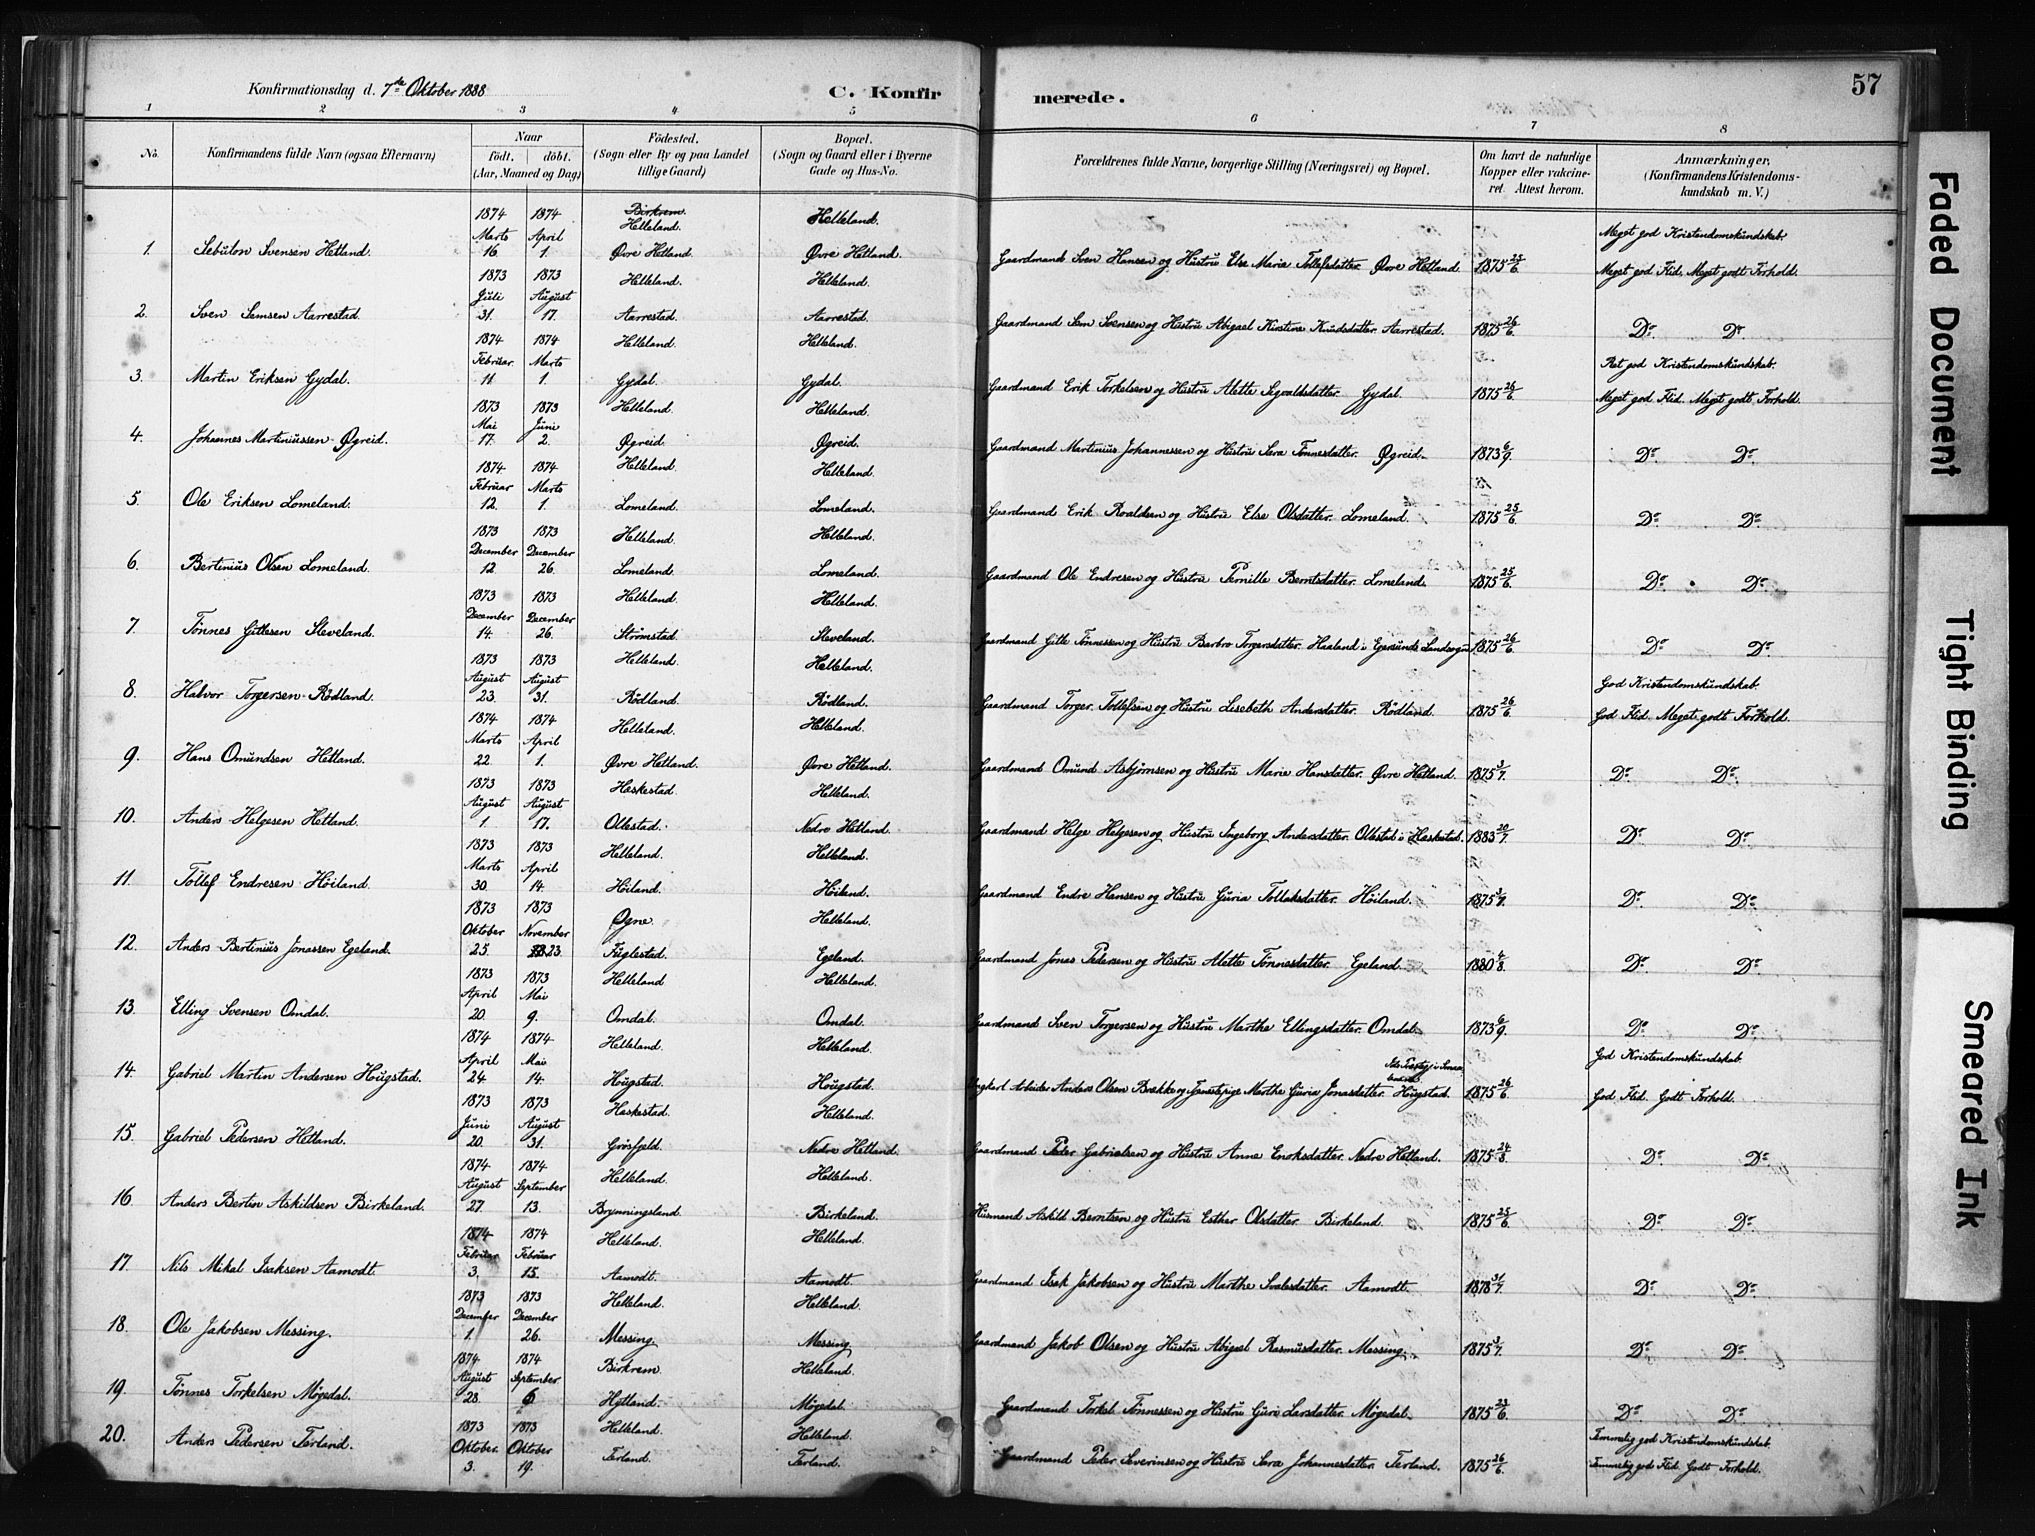 Konfirmationsdag d. 7de Oktober 1888 C. Konfirmerede. 57
1 2 3 4 5 6 7 8
No. Konfirmandens fulde Navn (ogsaa Efternavn) Naar født. døbt. (Aar, Maaned og Dag) Fødested. (Sogn eller By og paa Landet tillige Gaard) Bopæl. (Sogn og Gaard eller i Byerne Gade og Hus-No. Forældrenes fulde Navne, borgerlige Stilling (Næringsvei) og Bopæl. Om havt de naturlige Kopper eller vakcineret. Attest herom. Anmærkninger. (Konfirmandens Kristendomskundskab m. V.)
1874 1874 Birkrem. Helleland. Helleland.
Marts April Meget god Kristendomskundskab.
1. Sebulon Svensen Hetland. 16. 1. Øvre Hetland. Øvre Hetland. Gaardmand Sven Hansen og Hustru Else Maria Tollefsdatter. Øvre Hetland. 1875 25/6. Meget god Flid. Meget godt Forhold.
1873 1873 Helleland. Helleland.
Juli August
2. Sven Samsen Aarrestad. 31. 17. Aarrestad. Aarrestad. Gaardmand Sam Svensen og Hustru Abigael Kirstine Knudsdatter. Aarrestad. 1875 26/6. Do. Do.
1874 1874 Helleland. Helleland.
Februar Marts Ret god Kristendomskundskab.
3. Martin Eriksen Gydal. 11. 1. Gydal. Gydal. Gaardmand Erik Torkelsen og Hustru Alette Segvaldsdatter. Gydal. 1875 26/6. Meget god Flid. Meget godt Forhold.
1873 1873 Helleland. Helleland.
Mai Juni
4. Johannes Martiniussen Øgreid. 17. 2. Øgreid. Øgreid. Gaardmand Martinius Johannessen og Hustru Sara Tønnesdatter. Øgreid. 1873 6/9. Do. Do.
1874 1874 Helleland. Helleland.
Februar Marts
5. Ole Eriksen Lomeland. 12. 1. Lomeland. Lomeland. Gaardmand Erik Roaldsen og Hustru Else Olsdatter. Lomeland. 1875 25/6. Do. Do.
1873 1873 Helleland. Helleland.
December December
6. Bertinius Olsen Lomeland. 12 26. Lomeland. Lomeland. Gaardmand Ole Endresen og Hustru Pernille Berntsdatter. Lomeland. 1875 25/6. Do. Do.
1873 1873 Helleland. Helleland.
December December
7. Tønnes Gittesen Sleveland. 14. 26. Strømstad. Sleveland. Gaardmand Gitle Tønnessen og Hustru Barbro Torgersdatter. Haaland i Egersunds Landsogn 1875 26/6. Do. Do.
1873 1873 Helleland. Helleland.
August August God Kristendomskundskab.
8. Halvor Torgersen Rødland. 23. 31. Rødland. Rødland. Gaardmand Torger Tollefsen og Hustru Lisebeth Andersdatter. Rødland. 1875 26/6. God Flid. Meget godt Forhold.
1874 1874 Helleland. Helleland.
Marts April
9. Hans Omundsen Hetland. 22. 1. Øvre Hetland. Øvre Hetland. Gaardmand Omund Asbjørnsen og Hustru Marie Hansdatter. Øvre Hetland. 1875 3/7. Do. Do.
1873 1873 Heskestad. Helleland.
August August
10. Anders Helgesen Hetland. 1. 17. Ollestad. Nedre Hetland. Gaardmand Helge Helgesen og Hustru Ingeborg Andersdatter. Ollestad i Heskestad. 1883 20/7. Do. Do.
1873 1873 Helleland. Helleland.
Marts April
11. Tollef Endresen Høiland. 30. 14. Høiland. Høiland. Gaardmand Endre Hansen og Hustru Guria Tollaksdatter. Høiland. 1875 3/7. Do. Do.
1873 1873 Øgne. Helleland.
Oktober November
12. Anders Bertinius Jonassen Egeland. 25 23. Fuglestad. Egeland. Gaardmand Jonas Pedersen og Hustru Alette Tønnesdatter. Egeland. 1880 4/8. Do. Do.
1873 1873 Helleland Helleland.
April Mai
13. Elling Svensen Omdal. 20. 9. Omdal. Omdal. Gaardmand Sven Torgersen og Hustru Marthe Ellingsdatter. Omdal. 1873 6/9. Do. Do.
1874 1874 Helleland. Helleland.
April Mai God Kristendomskundskab.
14. Gabriel Martin Andersen Hougstad. 24. 14. Hougstad. Hougstad. Ungkarl Arbeider Anders Olsen Brække og Fæstepige Marthe Guria Jonasdatter. Hugstad. 1875 26/6. God Flid. Godt Forhold.
1873 1873 Heskestad. Helleland.
Juni August
15. Gabriel Pedersen Hetland. 20. 31. Grøsfjeld. Nedre Hetland. Gaardmand Peder Gabrielsen og Hustru Anne Enoksdatter. Nedre Hetland. 1875 24/8. Do. Do.
1874 1874 Helleland. Helleland.
August September
16. Anders Bertin Askildsen Birkeland. 27. 13. Brynningsland. Birkeland. Husmand Askild Berntsen og Hustru Esther Olsdatter. Birkeland. 1875 25/6. Do. Do.
1874 1874 Helleland. Helleland.
Februar Februar
17. Nils Mikal Isaksen Aamodt. 3. 15. Aamodt. Aamodt. Gaardmand Isak Jakobsen og Hustru Marthe Svalesdatter. Aamodt. 1878 31/7. Do. Do.
1873 1873 Helleland. Helleland.
December December
18. Ole Jakobsen Messing. 1. 26. Messing. Messing. Gaardmand Jakob Olsen og Hustru Abigael Rasmusdatter. Messing. 1875 3/7. Do. Do.
1874 1874 Birkrem. Helleland.
August September
19. Tønnes Torkelsen Møgedal. 28. 6 Hytland. Møgedal. Gaardmand Torkel Tønnessen og Hustru Guri Larsdatter. Møgedal. 1875 23/6. Do. Do.
1873 1873 Helleland. Helleland.
Oktober. Oktober Temmelig god Kristendomskundskab.
20. Anders Pedersen Terland. 3. 19. Terland. Terland. Gaardmand Peder Severinsen og Hustru Sara Johannesdatter. Terland. 1875 26/6. Temmelig god Flid. Godt Forhold.
Faded Document
Tight Binding
Smeared Ink